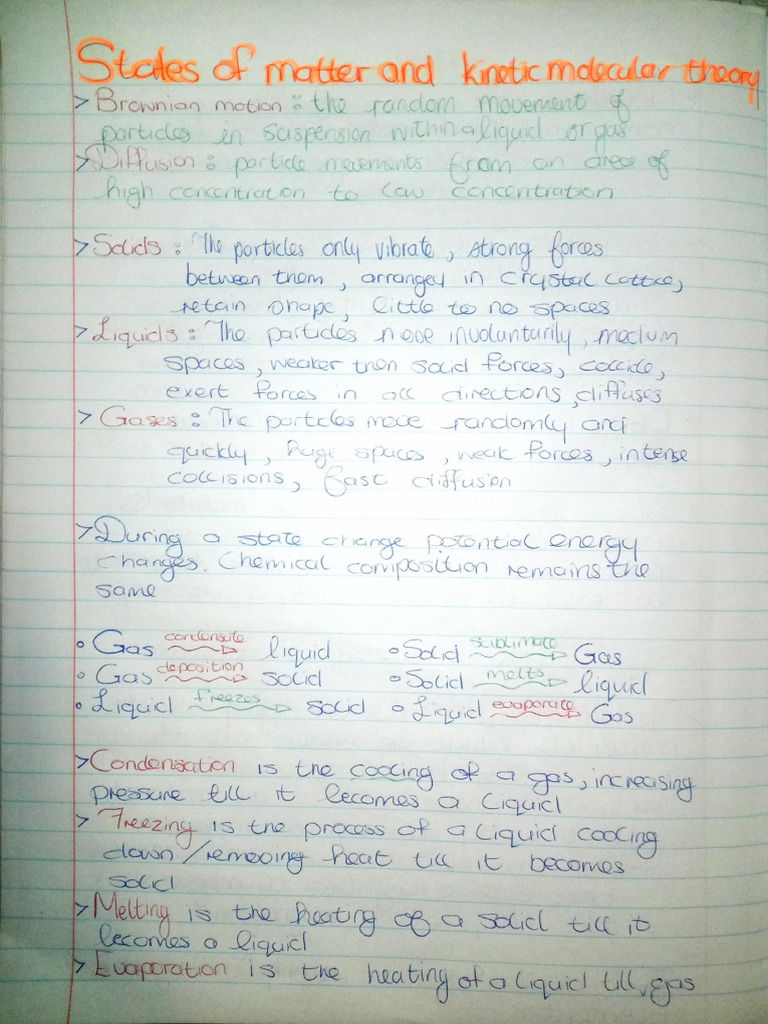 States of matter and kinetic molecular theory
> Brownian motion : the random movement of
particles in suspension within a liquid or gas
> Diffusion : particle movements from an area of
high concentration to low concentration
> Solids : The particles only vibrate, strong forces
between them, arranged in crystal lattice,
retain shape, little to no spaces
> Liquids : The particles move involuntarily, medium
spaces, weaker then solid forces, collide,
exert forces in all directions, diffuses
> Gases : The particles move randomly and
quickly, huge spaces, weak forces, intense
collisions, fast diffusion
> During a state change potential energy
changes. Chemical composition remains the
same
• Gas condensate liquid • Solid sublimate Gas
• Gas deposition solid • Solid melts liquid
• Liquid freezes solid • Liquid evaporate Gas
> Condensation is the cooling of a gas, increasing
pressure till it becomes a liquid
> Freezing is the process of a liquid cooling
down/removing heat till it becomes
solid
> Melting is the heating of a solid till it
becomes a liquid
> Evaporation is the heating of a liquid till gas